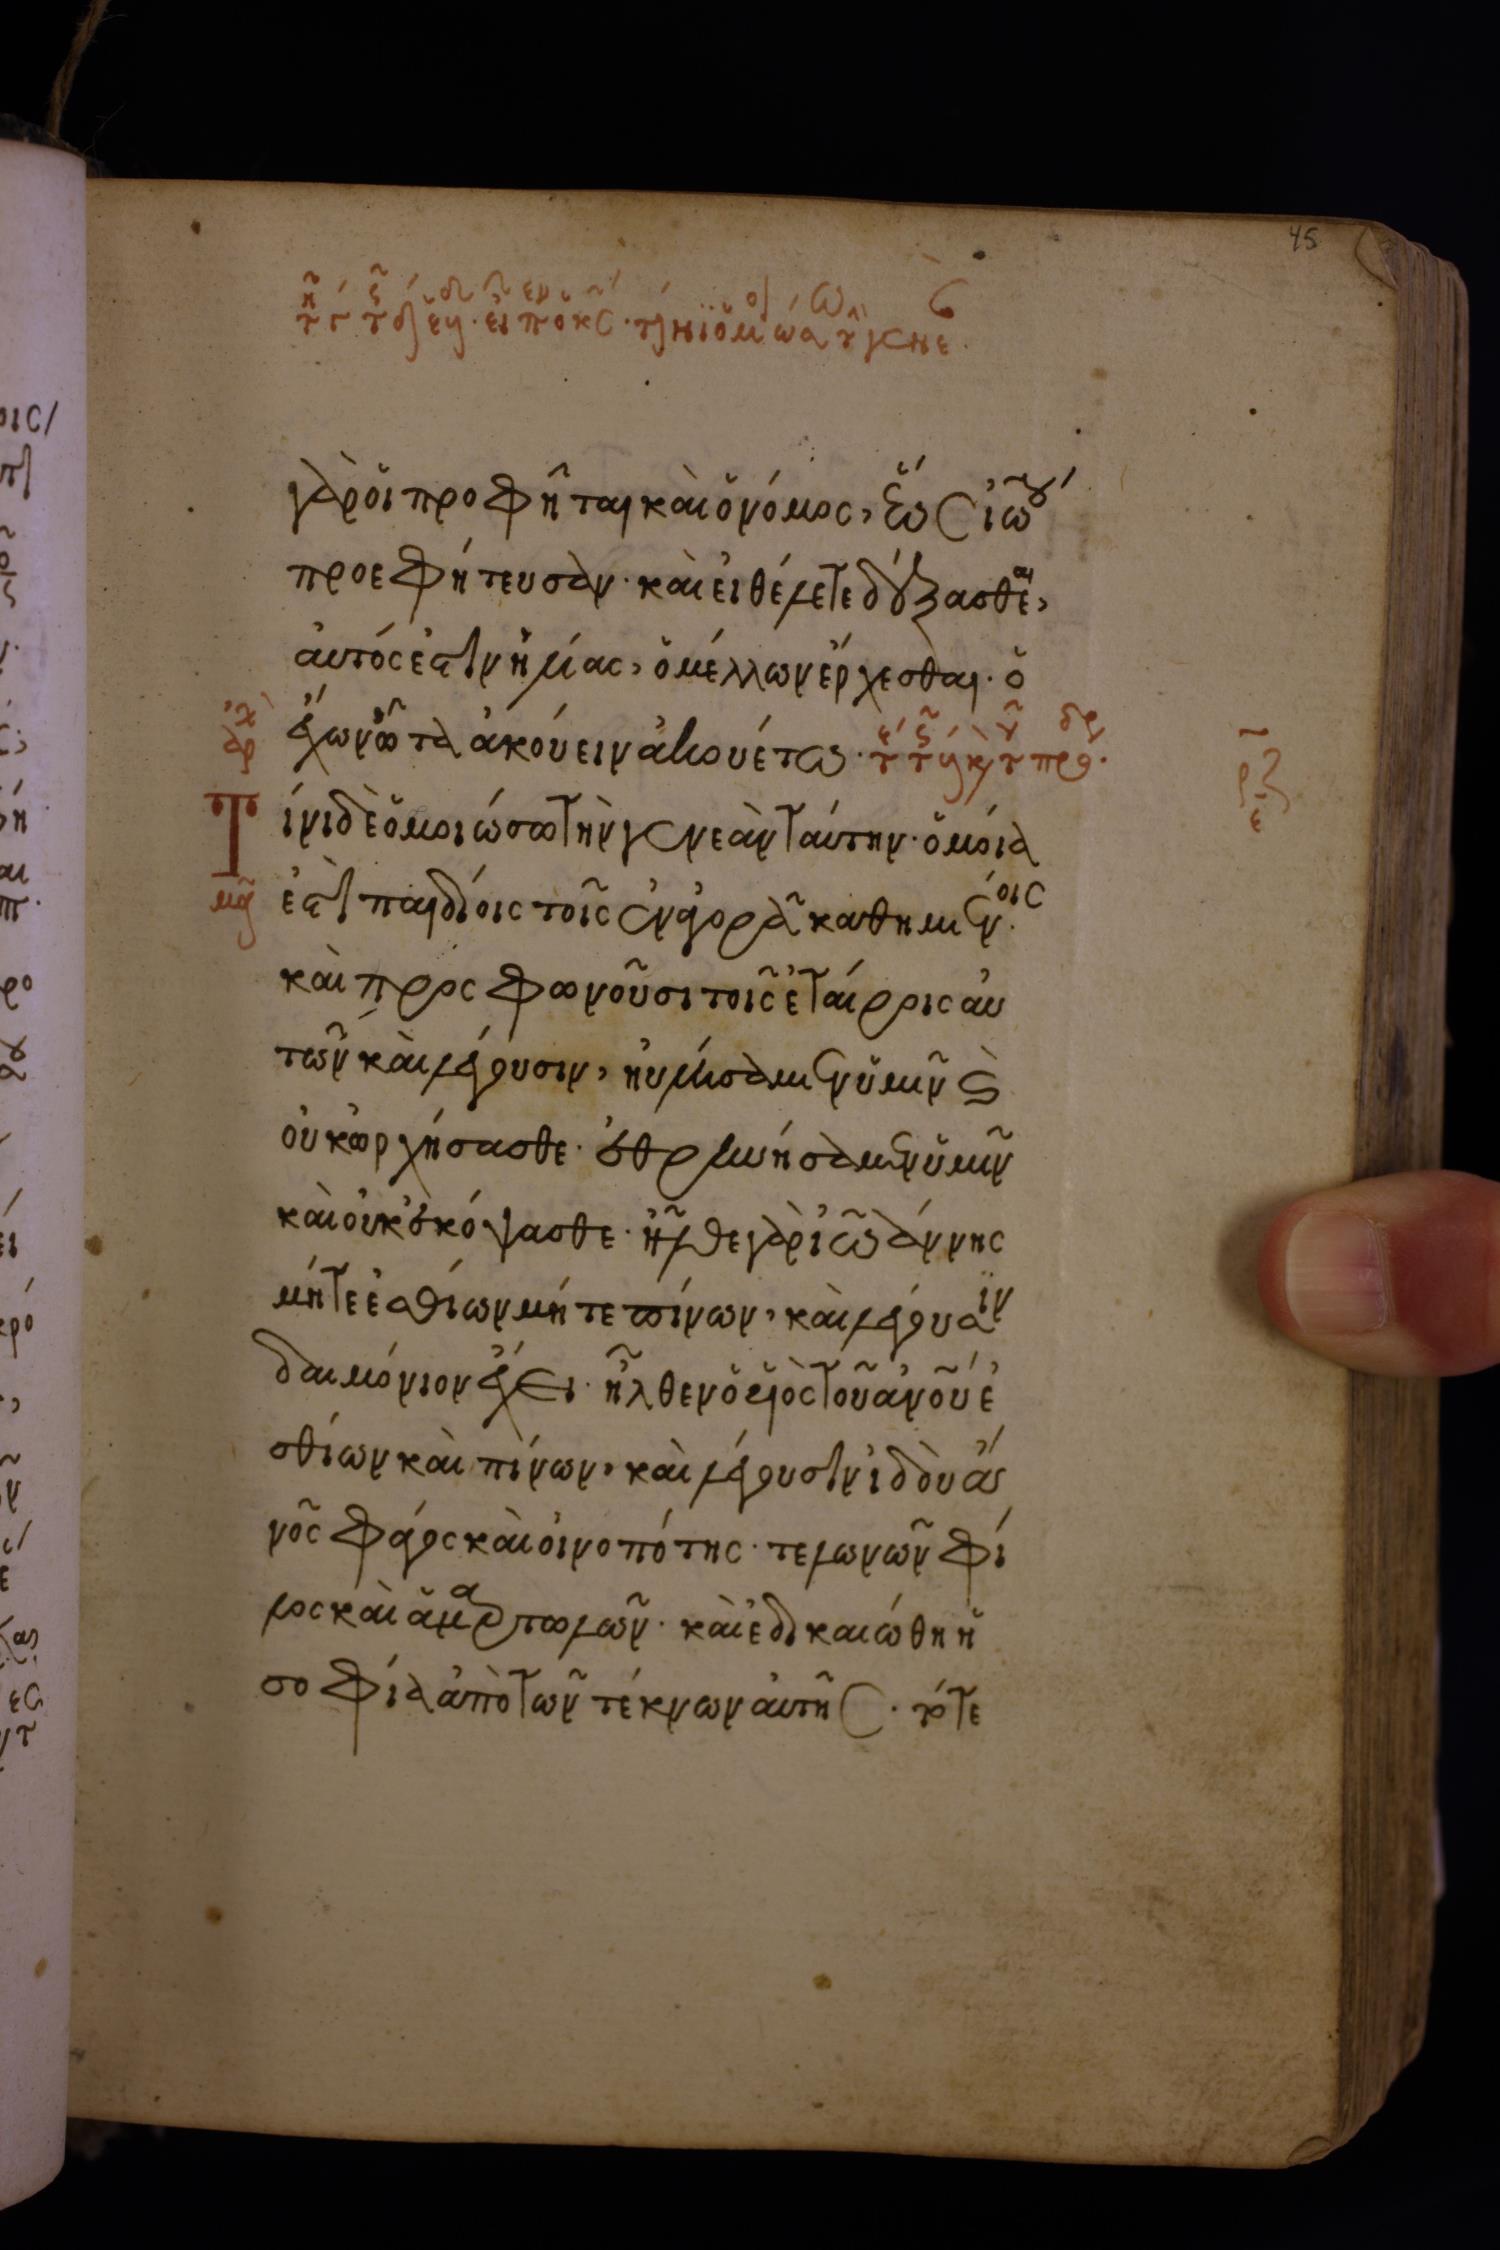 45
γὰρ οἱ προφῆται καὶ ὁ νόμος, ἕως ἰω
προεφήτευσαν· καὶ εἰ θέλετε δέξασθαι,
αὐτός ἐστιν ἠλίας, ὁ μέλλων ἔρχεσθαι· ὁ
ἔχων ὦτα ἀκούειν ἀκουέτω·
Τίνι δὲ ὁμοιώσω τὴν γενεὰν ταύτην· ὁμοία
ἐστὶ παιδίοις τοῖς ἐν ἀγορᾶ καθημένοις·
καὶ προσφωνοῦσι τοῖς ἑταίροις αὐ
τῶν καὶ λέγουσιν, ηὐλήσαμεν ὑμῖν καὶ
οὐκ ὠρχήσασθε· ἐθρηνήσαμεν ὑμῖν
καὶ οὐκ ἐκόψασθε· ἦλθε γὰρ ἰωάννης
μήτε ἐσθίων μήτε πίνων, καὶ λέγουσιν
δαιμόνιον ἔχει· ἦλθεν ὁ υἱὸς τοῦ ἀνοῦ ἐ
σθίων καὶ πίνων, καὶ λέγουσιν ἰδοὺ ἄ
νος φάγος καὶ οἰνοπότης· τελωνῶν φί
λος καὶ ἁμαρτωλῶν· καὶ ἐδικαιώθη ἡ
σοφία ἀπὸ τῶν τέκνων αὐτῆς· τότε